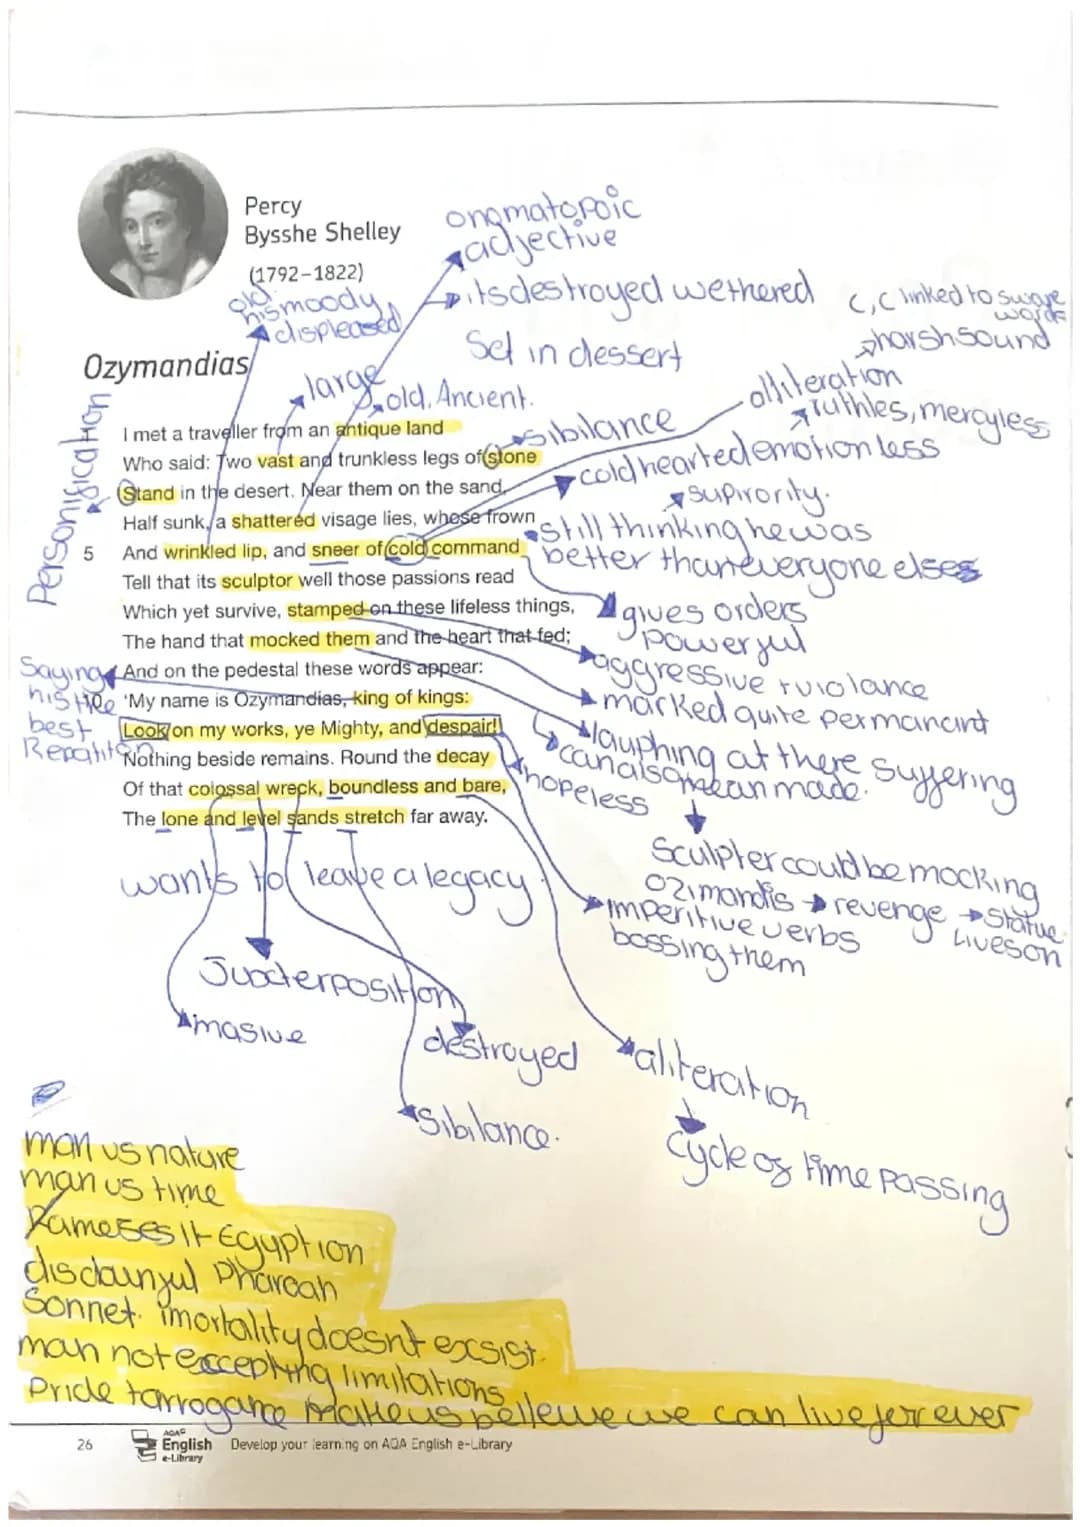 Percy
Bysshe Shelley
(1792–1822)
onomatopoic
adjective
itsdestroyed wethered
old
his moody
displeased
Set in dessert
C,C linked to sware
words
harsh sound
Ozymandias
large
old, Ancient.
alliteration
ruthles, mercyless
sibilance
cold hearted emotion less
supirority.
still thinking he was
better than everyone elses
Personification
I met a traveller from an antique land
Who said: Two vast and trunkless legs of stone
Stand in the desert. Near them on the sand,
Half sunk, a shattered visage lies, whose frown
5 And wrinkled lip, and sneer of cold command
Tell that its sculptor well those passions read
Which yet survive, stamped on these lifeless things,
The hand that mocked them and the heart that fed;
And on the pedestal these words appear:
'My name is Ozymandias, king of kings:
Look on my works, ye Mighty, and despair!'
Nothing beside remains. Round the decay
Of that colossal wreck, boundless and bare,
The lone and level sands stretch far away.
gives orders
powerful
aggressive + violance
marked quite permanant
laughing at there suffering
can also mean made.
hopeless
Saying
his the
best
Repatiton
Sculpter could be mocking
Ozimandis → revenge → Statue
Lives on
wants to leave a legacy
imperitive verbs
bossing them
Juxterposition
masive
destroyed
aliteration
Sibilance.
Cycle of time passing
man vs nature
man vs time
Rameses II Egyption
disdainful Pharoah
Sonnet. imortality doesn't exsist.
man not eccepting limitations
Pride + arrogance makeus believe we can live for ever
26
AQA
English
e-Library
Develop your learning on AQA English e-Library